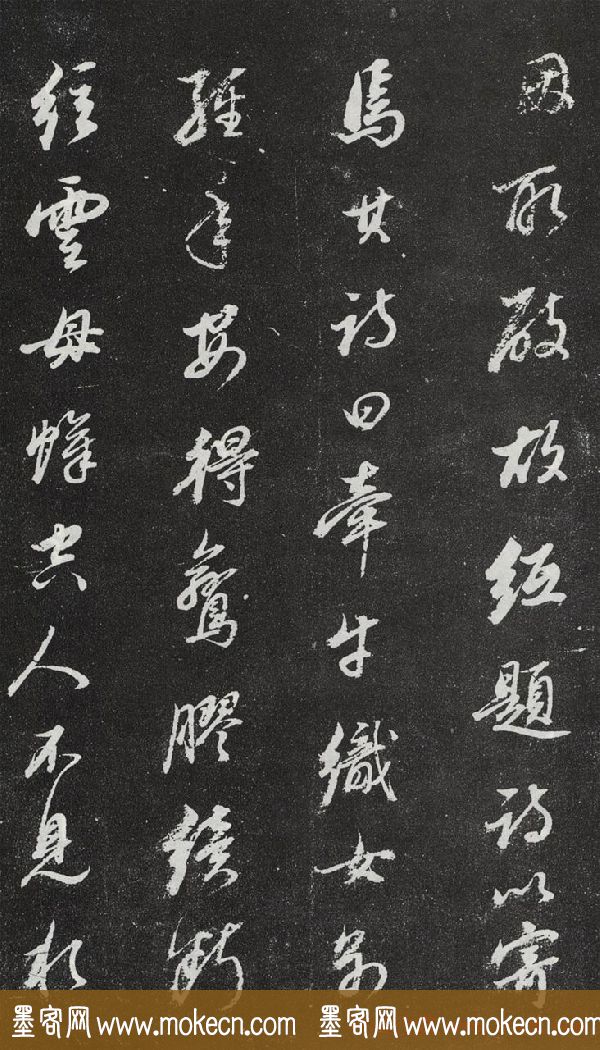 因取破故紙題詩以寄
焉其詩曰牽牛織女別
經年安得鸞膠續斷
絃雲母帳空人不見水
墨客网 www.mokecn.com 墨客网 www.mokecn.com